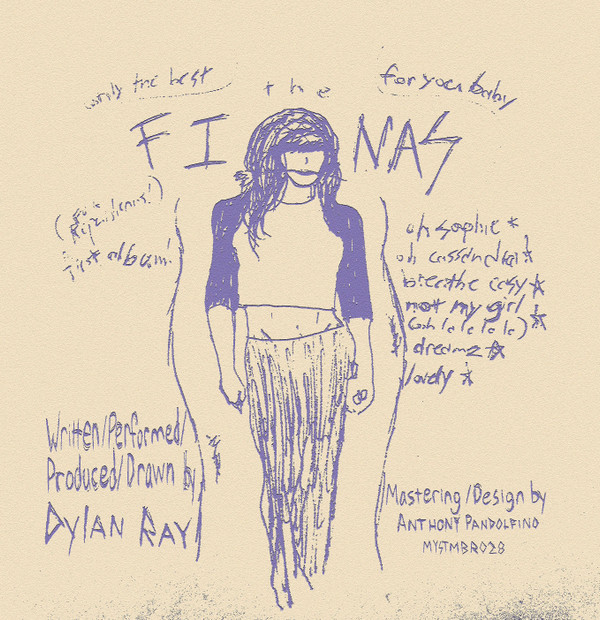 only the best
the
for you baby
FINAS
first album!
oh sophie *
oh cassandra *
breathe easy *
not my girl
(ooh la la la la) *
dreamz *
lovely *
Written/Performed/
Produced/Drawn by
DYLAN RAY
Mastering/Design by
ANTHONY PANDOLFINO
MYSTMBR028